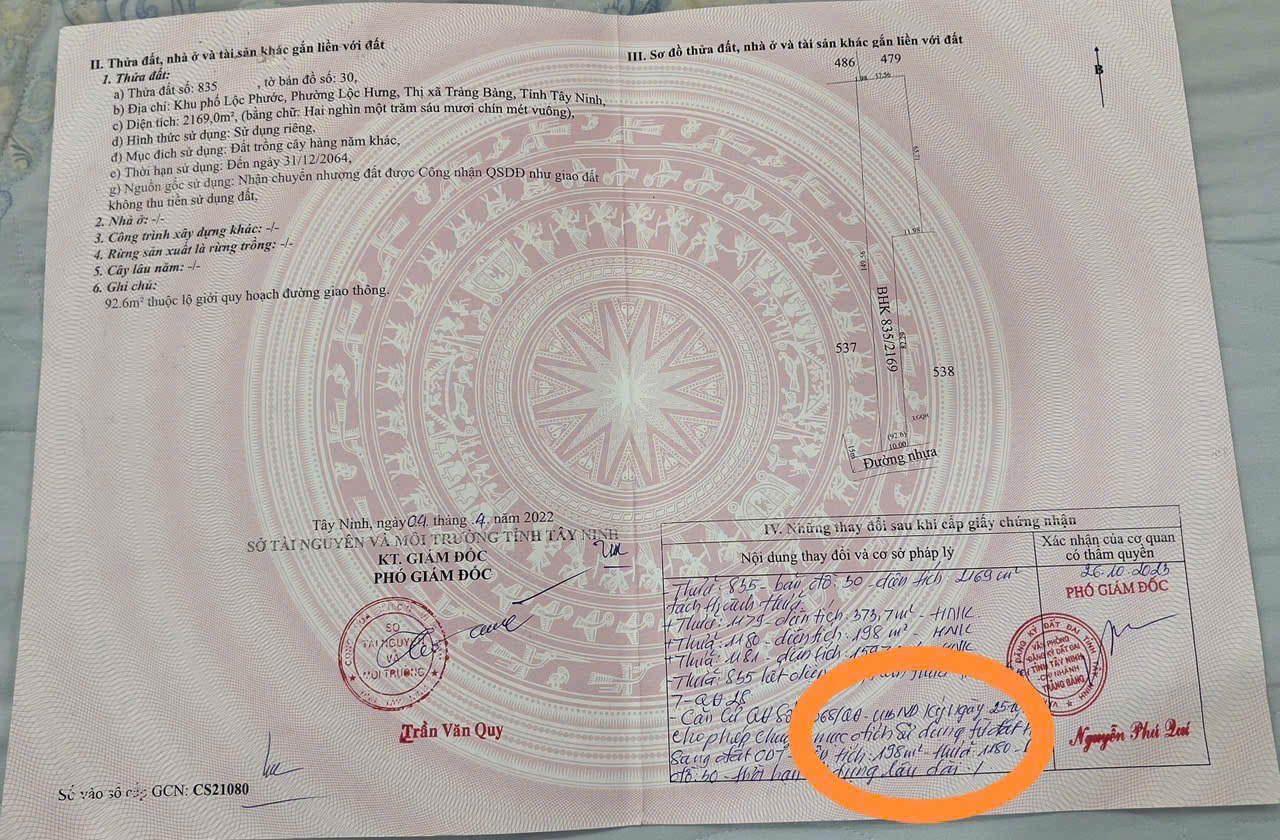 II. Thửa đất, nhà ở và tài sản khác gắn liền với đất
1. Thửa đất:
a) Thửa đất số: 835 , tờ bản đồ số: 30,
b) Địa chỉ: Khu phố Lộc Phước, Phường Lộc Hưng, Thị xã Trảng Bàng, Tỉnh Tây Ninh,
c) Diện tích: 2169,0m², (bằng chữ: Hai nghìn một trăm sáu mươi chín mét vuông),
d) Hình thức sử dụng: Sử dụng riêng,
đ) Mục đích sử dụng: Đất trồng cây hàng năm khác,
e) Thời hạn sử dụng: Đến ngày 31/12/2064,
g) Nguồn gốc sử dụng: Nhận chuyển nhượng đất được Công nhận QSDĐ như giao đất
không thu tiền sử dụng đất,
2. Nhà ở: -/-
3. Công trình xây dựng khác: -/-
4. Rừng sản xuất là rừng trồng: -/-
5. Cây lâu năm: -/-
6. Ghi chú:
92.6m² thuộc lộ giới quy hoạch đường giao thông.
Tây Ninh, ngày 04 tháng 4 năm 2022
SỞ TÀI NGUYÊN VÀ MÔI TRƯỜNG TỈNH TÂY NINH
KT. GIÁM ĐỐC
PHÓ GIÁM ĐỐC
SỞ
TÀI NGUYÊN
VÀ
MÔI TRƯỜNG
Trần Văn Quy
Số vào sổ cấp GCN: CS21080
III. Sơ đồ thửa đất, nhà ở và tài sản khác gắn liền với đất
486 479
B
1.98 17.56
65.71
11.98
149.56
BHK 835/2169
82.79
537
538
LGQH
(92.6)
10.00
15m
Đường nhựa
IV. Những thay đổi sau khi cấp giấy chứng nhận
Nội dung thay đổi và cơ sở pháp lý
Xác nhận của cơ quan
có thẩm quyền
- Thửa: 835 - bản đồ: 30 - diện tích: 2169 m²
tách thành thửa
+ Thửa: 1179 - diện tích: 373,7m² - HNK
+ Thửa: 1180 - diện tích: 198 m² - HNK
+ Thửa: 1181 - diện tích: 1597 HNK
- Thửa: 835 thửa
- Căn cứ QĐ số 68/QĐ - UBND ký ngày 25
cho phép chuyển mục đích sử dụng từ đất
sang đất ODT tích: 198m² - thửa: 1180 -
đồ: 30 - thời hạn dụng lâu dài ./
26.10.2023
PHÓ GIÁM ĐỐC
VĂN PHÒNG
ĐĂNG KÝ ĐẤT ĐAI
TỈNH TÂY NINH
CHI NHÁNH
TRẢNG BÀNG
Nguyễn Phú Quí